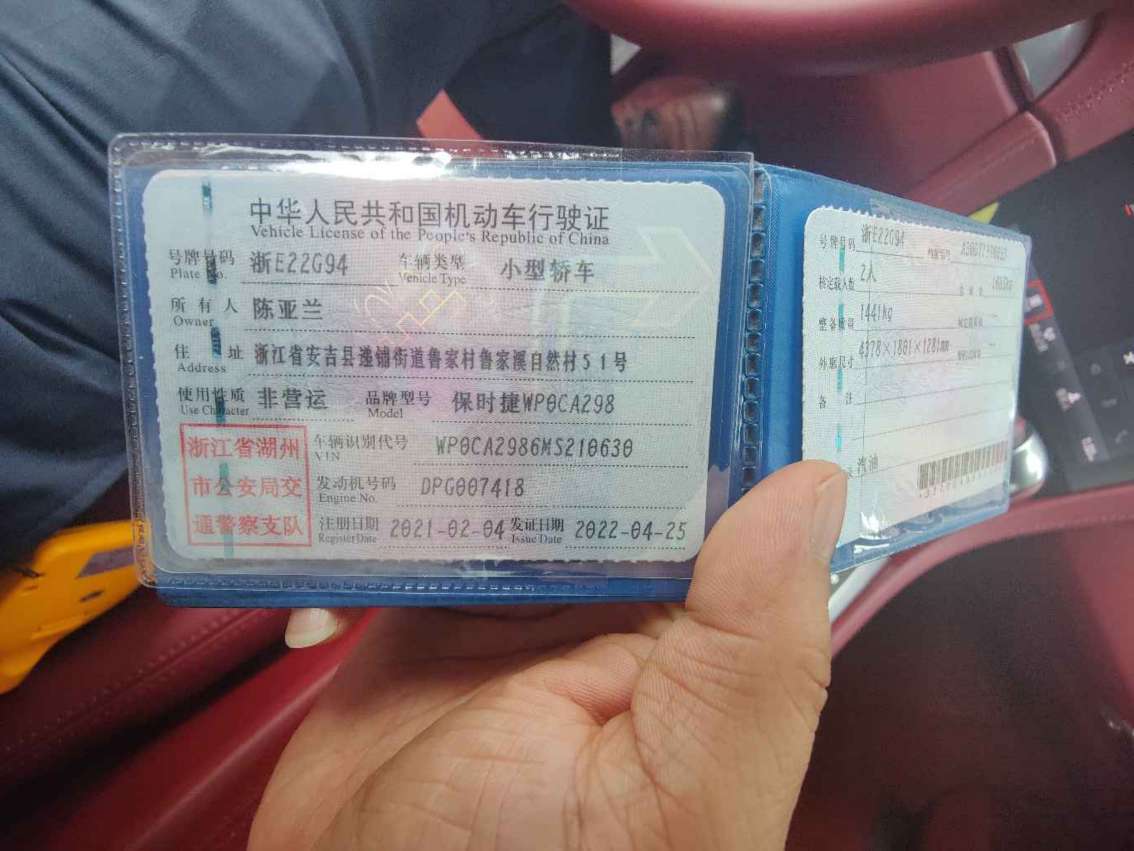 中华人民共和国机动车行驶证
Vehicle License of the People's Republic of China
号牌号码 浙E22G94 车辆类型 小型轿车
Plate No. Vehicle Type
所有人 陈亚兰
Owner
住址 浙江省安吉县递铺街道鲁家村鲁家溪自然村51号
Address
使用性质 非营运 品牌型号 保时捷WP0CA298
Use Character Model
浙江省湖州
市公安局交
通警察支队
车辆识别代号 WP0CA2986MS210630
VIN
发动机号码 DPG007418
Engine No.
注册日期 2021-02-04 发证日期 2022-04-25
Register Date Issue Date
号牌号码 浙E22G94
核定载人数 2人
整备质量 1441kg
外廓尺寸 4378×1801×1281mm
备注
汽油